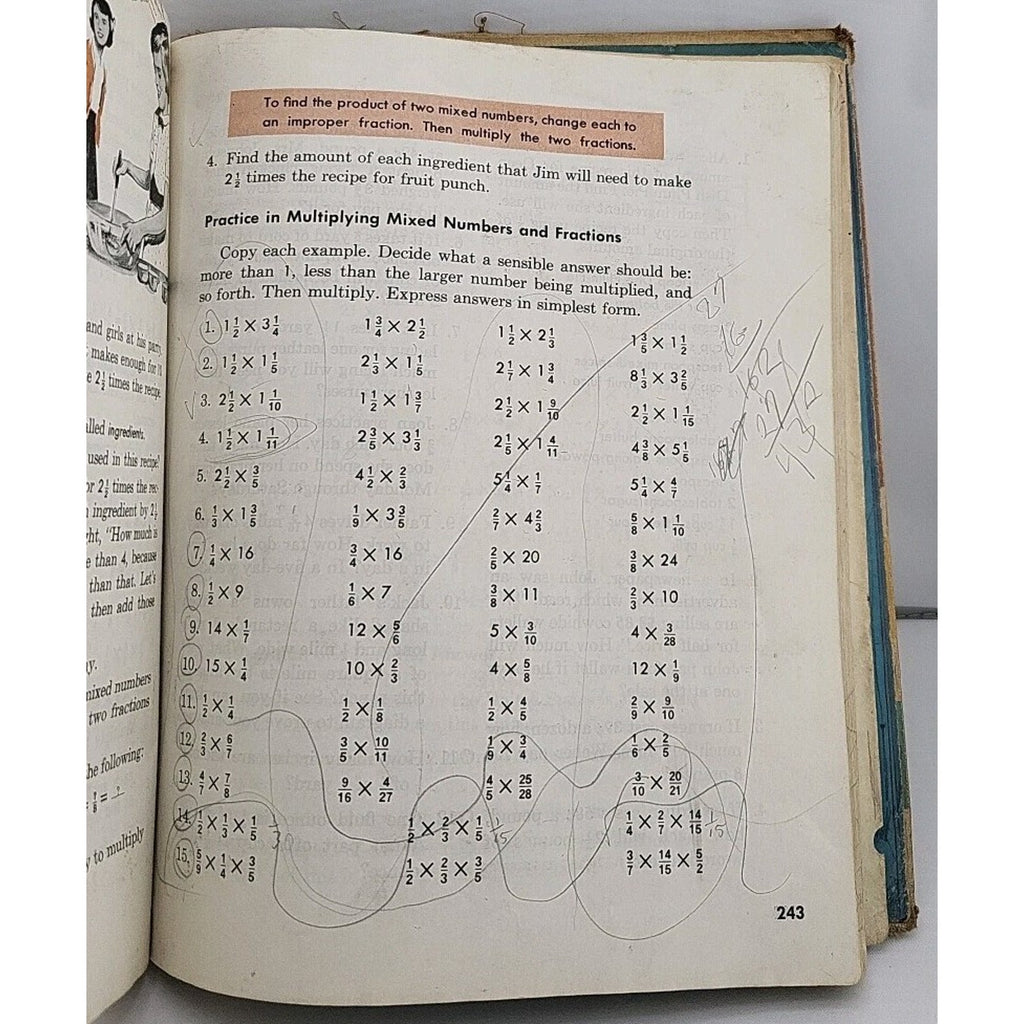 and girls at his party
makes enough for
e 2½ times the recipe
lled ingredients.
used in this recipe?
or 2½ times the rec-
ingredient by 2½
ht, "How much is
e than 4, because
than that. Let's
then add those
ny.
mixed numbers
two fractions
he following:
= ?
y to multiply
To find the product of two mixed numbers, change each to
an improper fraction. Then multiply the two fractions.
4. Find the amount of each ingredient that Jim will need to make
2½ times the recipe for fruit punch.
Practice in Multiplying Mixed Numbers and Fractions
Copy each example. Decide what a sensible answer should be:
more than 1, less than the larger number being multiplied, and
so forth. Then multiply. Express answers in simplest form.
1. 1 1/2 × 3 1/4 1 3/4 × 2 1/2 1 1/2 × 2 1/3 1 3/5 × 1 1/2
2. 1 1/2 × 1 1/5 2 1/3 × 1 1/5 2 1/7 × 1 3/4 8 1/3 × 3 2/5
3. 2 1/2 × 1 1/10 1 1/2 × 1 3/7 2 1/2 × 1 9/10 2 1/2 × 1 1/15
4. 1 1/2 × 1 1/11 2 3/5 × 3 1/3 2 1/5 × 1 4/11 4 3/8 × 5 1/5
5. 2 1/2 × 3/5 4 1/2 × 2/3 5 1/4 × 1/7 5 1/4 × 4/7
6. 1/3 × 1 3/5 1/9 × 3 3/5 2/7 × 4 2/3 5/8 × 1 1/10
7. 1/4 × 16 3/4 × 16 2/5 × 20 3/8 × 24
8. 1/2 × 9 1/6 × 7 3/8 × 11 2/3 × 10
9. 14 × 1/7 12 × 5/6 5 × 3/10 4 × 3/28
10. 15 × 1/4 10 × 2/3 4 × 5/8 12 × 1/9
11. 1/2 × 1/4 1/2 × 1/8 1/2 × 4/5 2/9 × 9/10
12. 2/3 × 6/7 3/5 × 10/11 1/9 × 3/4 1/6 × 2/5
13. 4/7 × 7/8 9/16 × 4/27 4/5 × 25/28 3/10 × 20/21
14. 1/2 × 1/3 × 1/5 1/2 × 2/3 × 1/5 1/15 1/4 × 2/7 × 14/15 1/15
15. 5/9 × 1/4 × 3/5 1/2 × 2/3 × 3/5 3/7 × 14/15 × 5/2
243